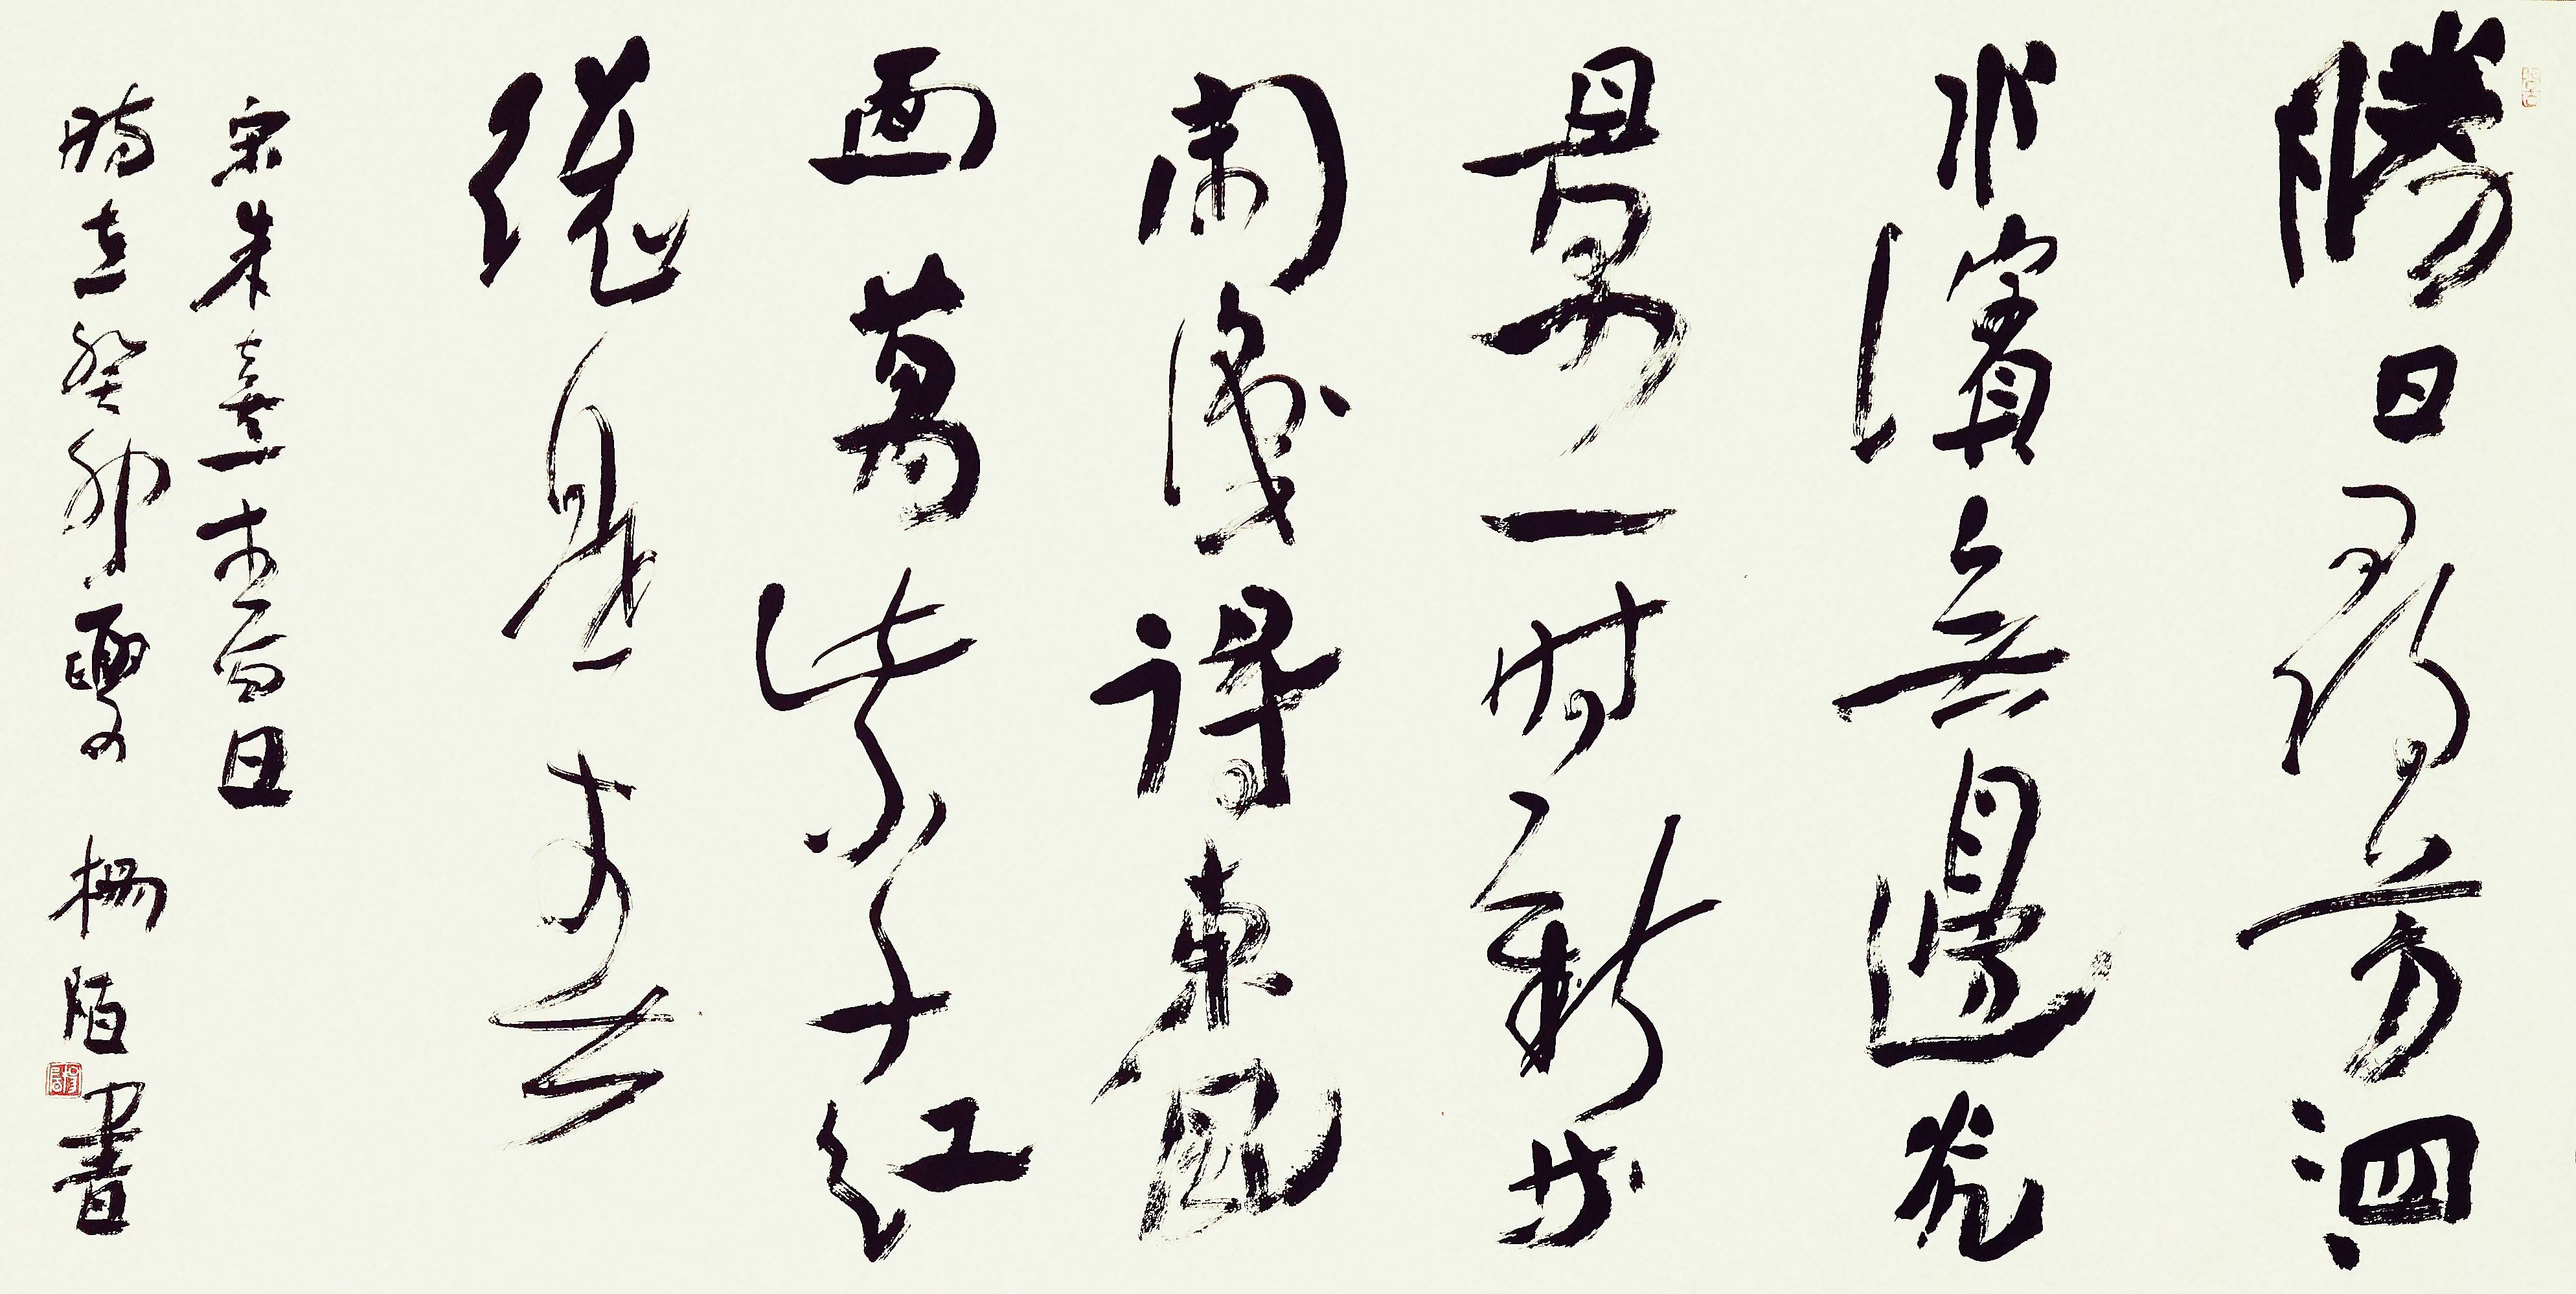 勝日尋芳泗
水濱無邊光
景一時新等
閑識得東風
面萬紫千紅
總是春
宋朱熹春日
時在癸卯 陌書